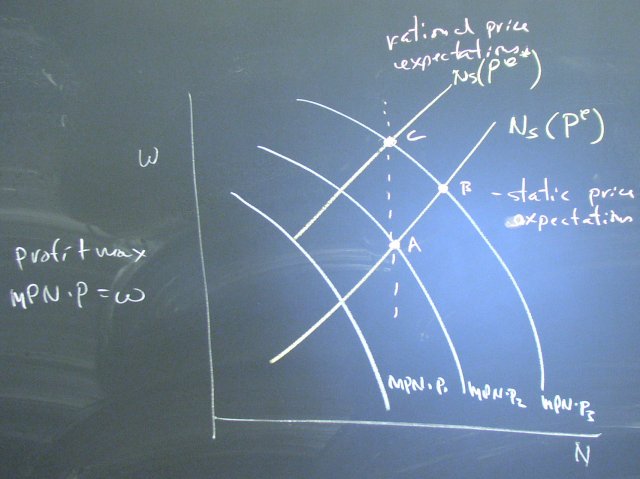 rational price
expectations
Ns(Pe*)
C
Ns(Pe)
W
B
- static price
expectations
A
profit max
MPN·P = W
MPN·P1
MPN·P2
MPN·P3
N